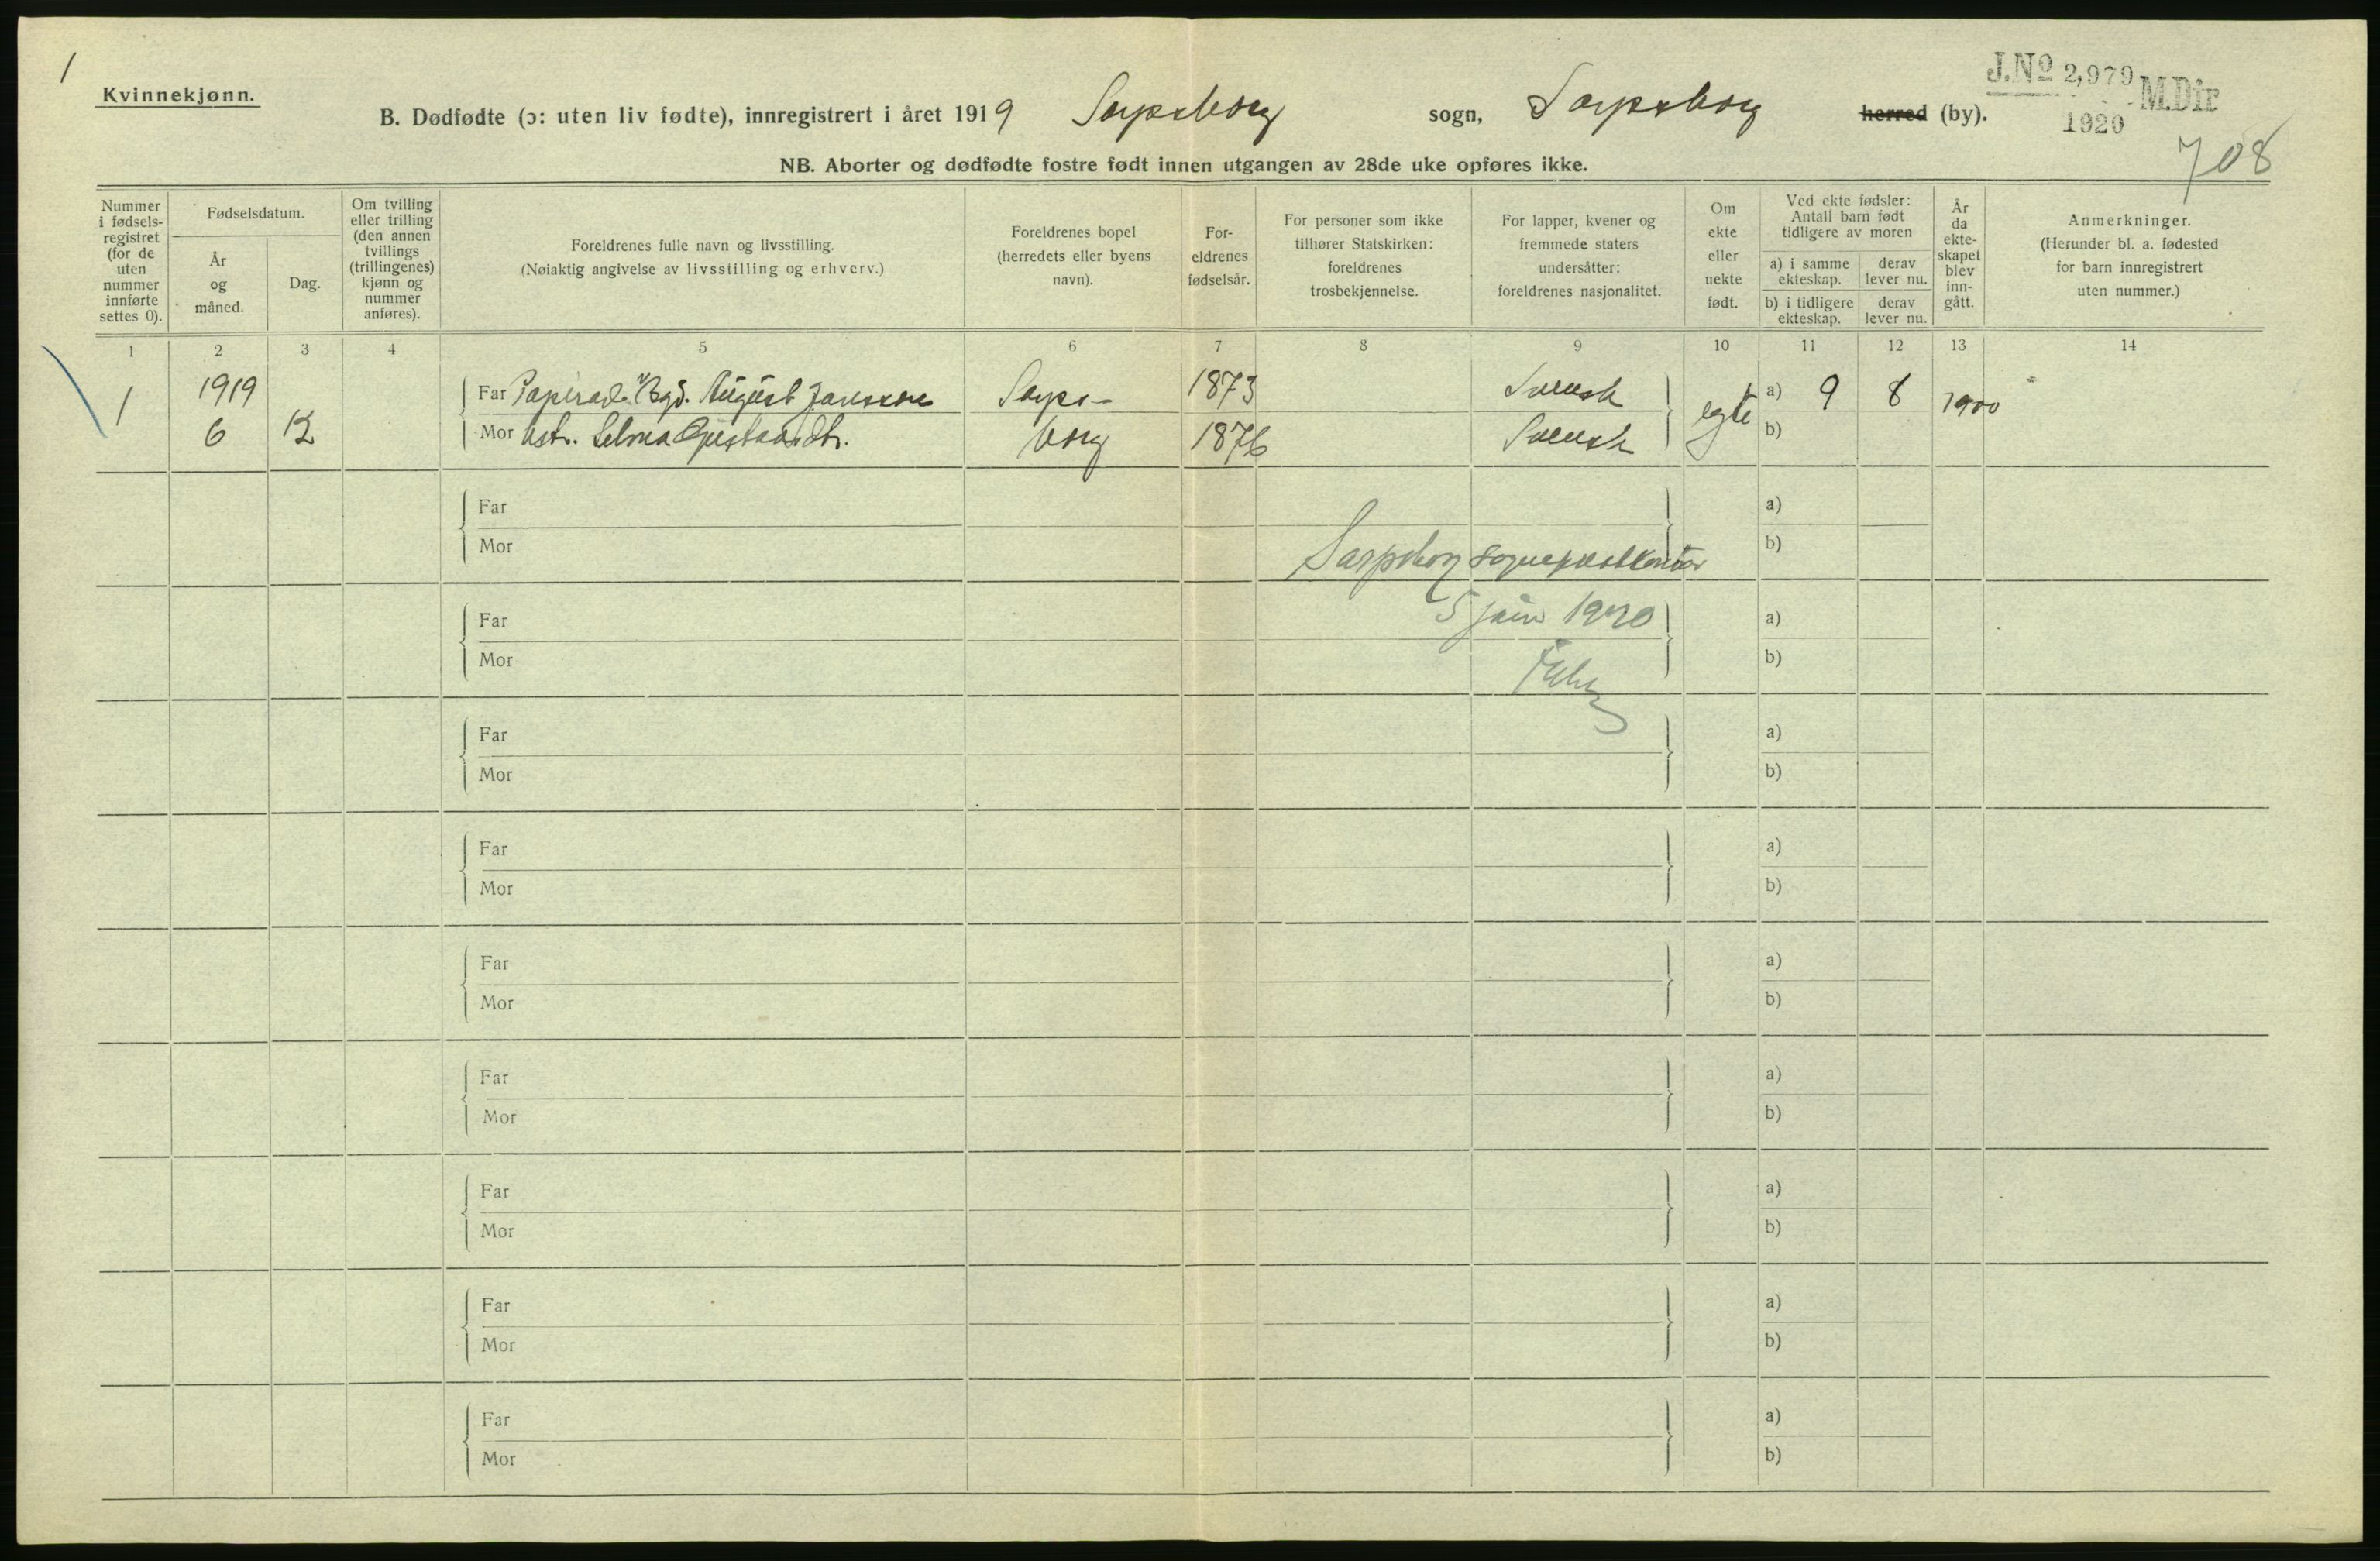 1
Kvinnekjønn.
B. Dødfødte (ɔ: uten liv fødte), innregistrert i året 1919 Sarpsborg sogn, Sarpsborg herred (by).
J.Nº 2,979 M.Dir
1920
708
NB. Aborter og dødfødte fostre født innen utgangen av 28de uke opføres ikke.
Nummer i fødsels-registret (for de uten nummer innførte settes 0).
Fødselsdatum.
År og måned.
Dag.
Om tvilling eller trilling (den annen tvillings (trillingenes) kjønn og nummer anføres).
Foreldrenes fulle navn og livsstilling.
(Nøiaktig angivelse av livsstilling og erhverv.)
Foreldrenes bopel (herredets eller byens navn).
For-eldrenes fødselsår.
For personer som ikke tilhører Statskirken: foreldrenes trosbekjennelse.
For lapper, kvener og fremmede staters undersåtter: foreldrenes nasjonalitet.
Om ekte eller uekte født.
Ved ekte fødsler: Antall barn født tidligere av moren
a) i samme ekteskap.
derav lever nu.
b) i tidligere ekteskap.
derav lever nu.
År da ekte-skapet blev inn-gått.
Anmerkninger.
(Herunder bl. a. fødested for barn innregistrert uten nummer.)
1 2 3 4 5 6 7 8 9 10 11 12 13 14
1 1919 Far August Jansson Sarps- 1873 Svensk egte a) 9 8 1900
6 12 Mor Hstr. Selma Gustavsdtr. borg 1876 Svensk b)
Far a)
Mor b)
Sarpsborg sogneprestkontor
Far 5 juni 1920 a)
Mor b)
Far a)
Mor b)
Far a)
Mor b)
Far a)
Mor b)
Far a)
Mor b)
Far a)
Mor b)
Far a)
Mor b)
Far a)
Mor b)